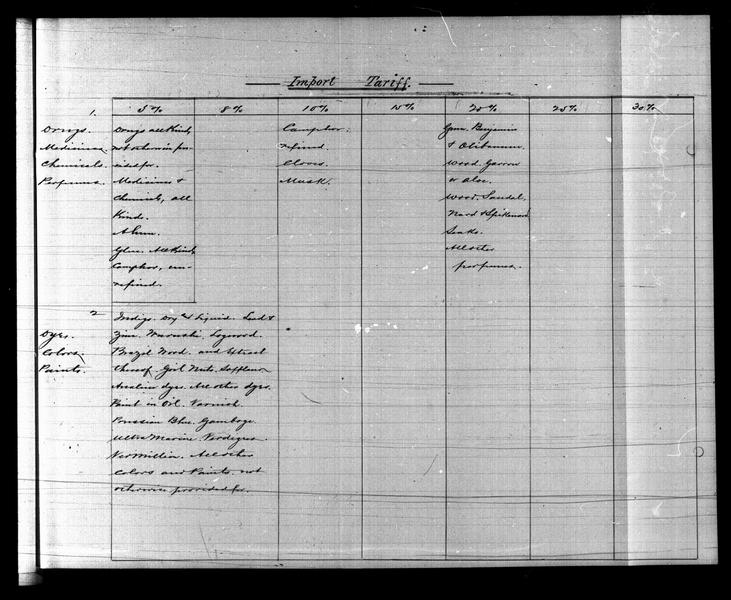 Import Tariff.
5% 8% 10% 15% 20% 25% 30%
1.
Drugs.
Medicines,
Chemicals.
Perfumes.
Drugs all Kinds,
not otherwise pro-
vided for.
Medicines &
Chemicals, all
Kinds.
Alum.
Glue. All Kinds,
Camphor, un-
refined.
Camphor.
refined.
Cloves.
Musk.
Gum. Benjamin
& Olibanum.
Wood. Garroo
or Aloe.
Wood. Sandal.
Nard & Spikenard
All other
perfumes.
2
Dyes.
Colors,
Paints.
Indigo. Dry & Liquid. Lead &
Zinc. Logwood.
Brazil Wood. and Extract
thereof. Nuts. Safflower
Analine dyes. All other dyes.
Paint in Oil. Varnish.
Prussian Blue. Gamboge.
Ultra Marine. Verdegres.
Vermillion. All other
Colors and Paints. not
otherwise provided for.